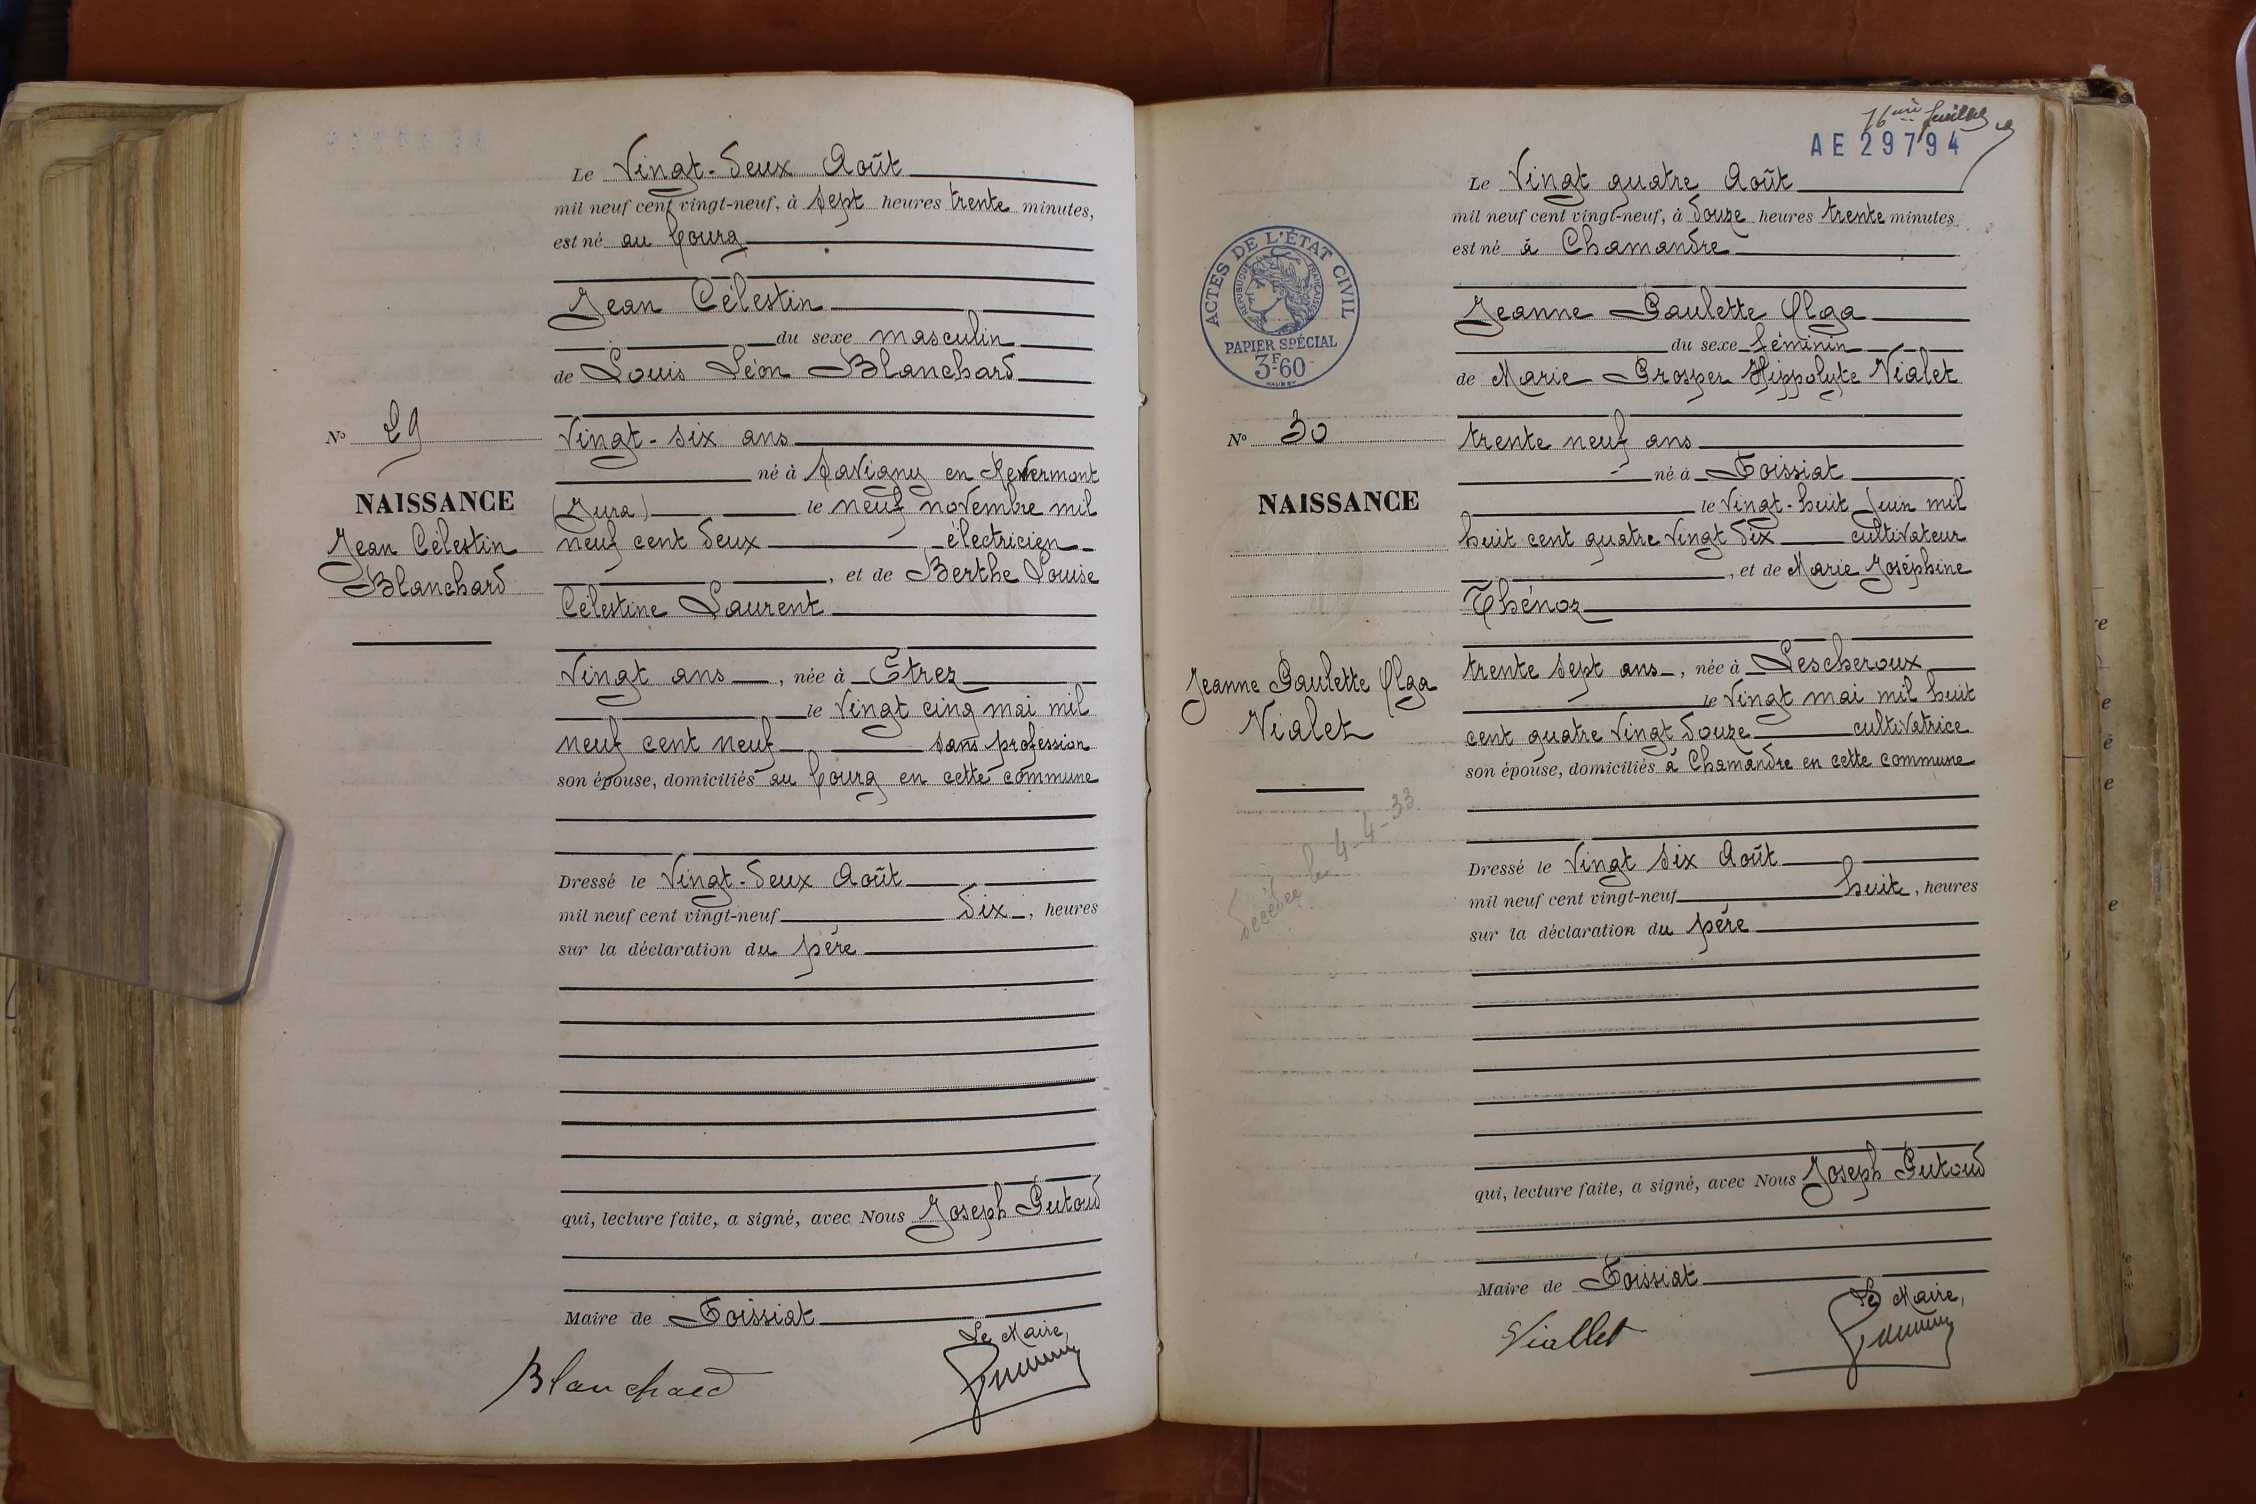 Le Vingt-deux Août
mil neuf cent vingt-neuf, à sept heures trente minutes,
est né au bourg
Jean Célestin
du sexe masculin
de Louis Léon Blanchard
N° 29
Vingt-six ans
né à Savigny en Revermont
(Jura) le neuf novembre mil
NAISSANCE
Jean Célestin
Blanchard
neuf cent deux électricien
, et de Berthe Louise
Célestine Laurent
Vingt ans, née à Étrez
le vingt cinq mai mil
neuf cent neuf sans profession
son épouse, domiciliés au bourg en cette commune
Dressé le Vingt-deux Août
mil neuf cent vingt-neuf dix, heures
sur la déclaration du père
qui, lecture faite, a signé, avec Nous Joseph Putoud
Maire de Foissiat
Le Maire,
Blanchard
16ème feuillet
AE 29794
Le Vingt quatre Août
mil neuf cent vingt-neuf, à douze heures trente minutes
est né à Chamandre
ACTES DE L'ÉTAT CIVIL
RÉPUBLIQUE FRANÇAISE
PAPIER SPÉCIAL
3F60
Jeanne Paulette Olga
du sexe féminin
de Marie Prosper Hippolyte Vialet
N° 30
trente neuf ans
né à Foissiat
NAISSANCE
le vingt-huit Juin mil
huit cent quatre vingt dix cultivateur
, et de Marie Joséphine
Thénoz
Jeanne Paulette Olga
Vialet
trente sept ans, née à Lescheroux
le vingt mai mil huit
cent quatre vingt douze cultivatrice
son épouse, domiciliés à Chamandre en cette commune
décédée le 4-4-33
Dressé le vingt six Août
mil neuf cent vingt-neuf huit, heures
sur la déclaration du père
qui, lecture faite, a signé, avec Nous Joseph Putoud
Maire de Foissiat
Le Maire,
Viallet